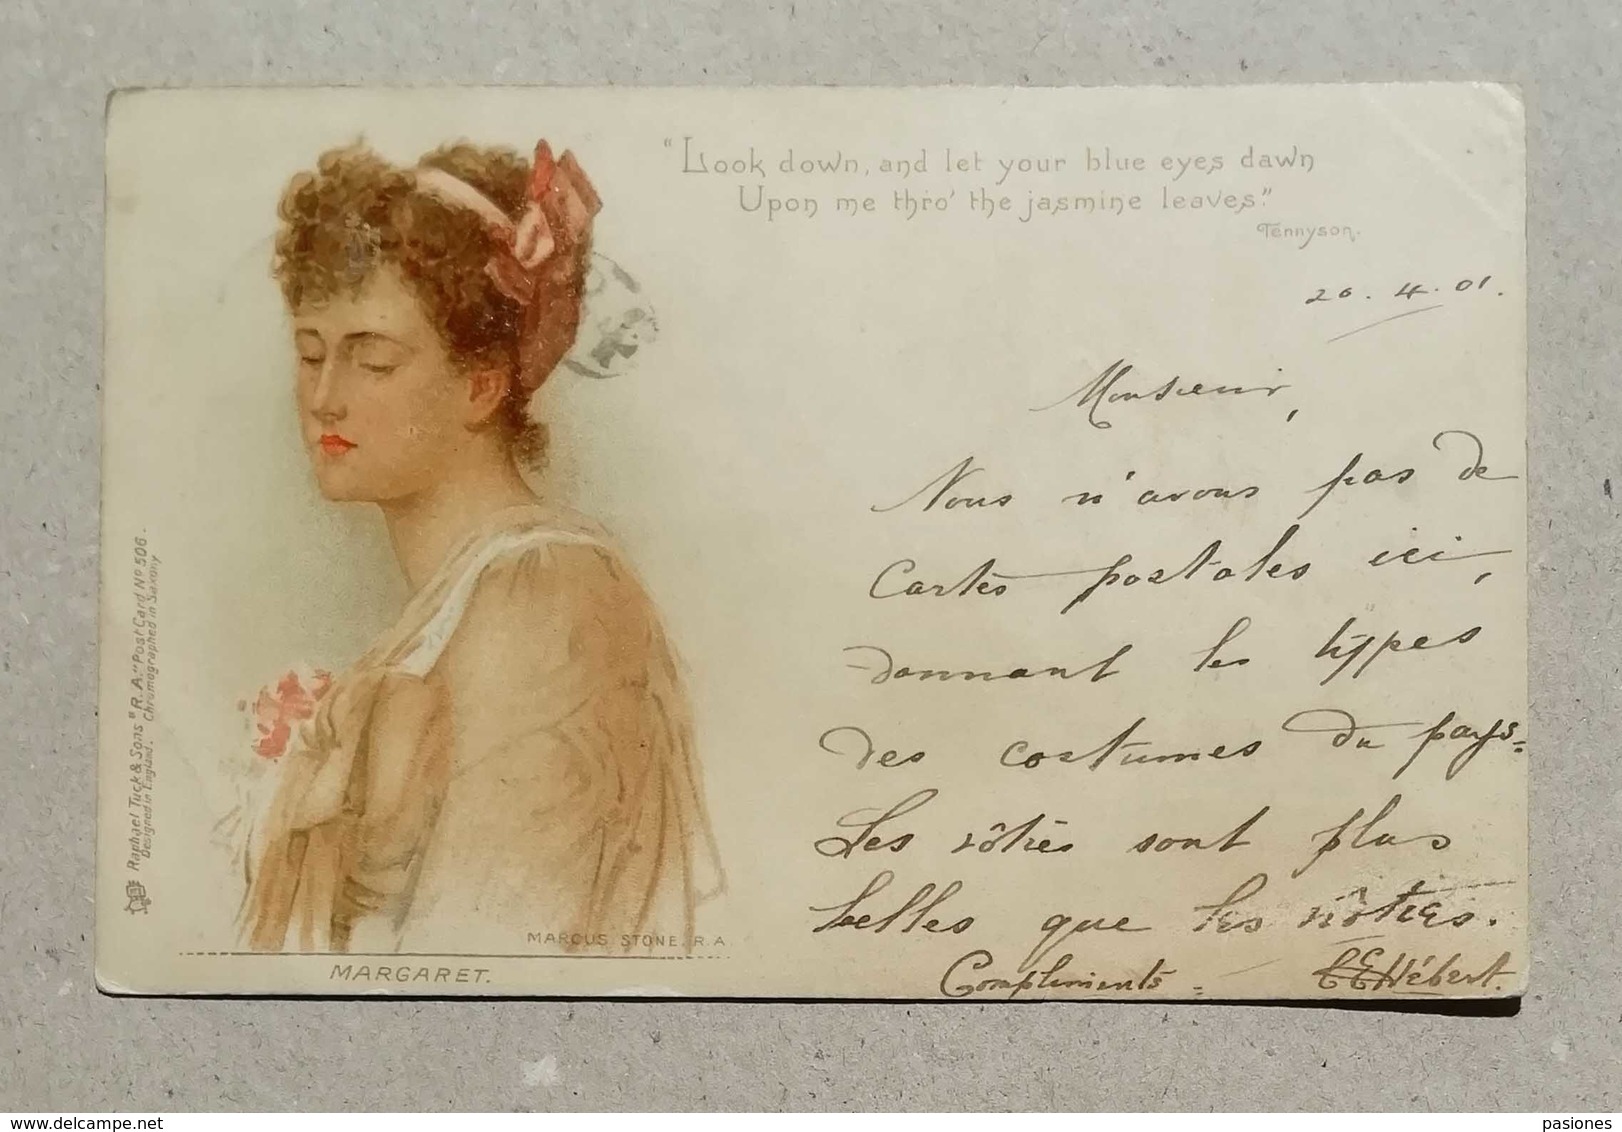 "Look down, and let your blue eyes dawn
Upon me thro' the jasmine leaves."
Tennyson.
20.4.01.
Monsieur,
Nous n'avons pas de
Cartes postales ici,
donnant les types
des costumes du pays=
Les vôtres sont plus
belles que les nôtres.
Compliments =
Hébert.
MARCUS STONE. R.A
MARGARET.
Raphael Tuck & Sons "R.A." Post Card Nº 506.
Designed in England. Chromographed in Saxony
www.delcampe.net
pasiones